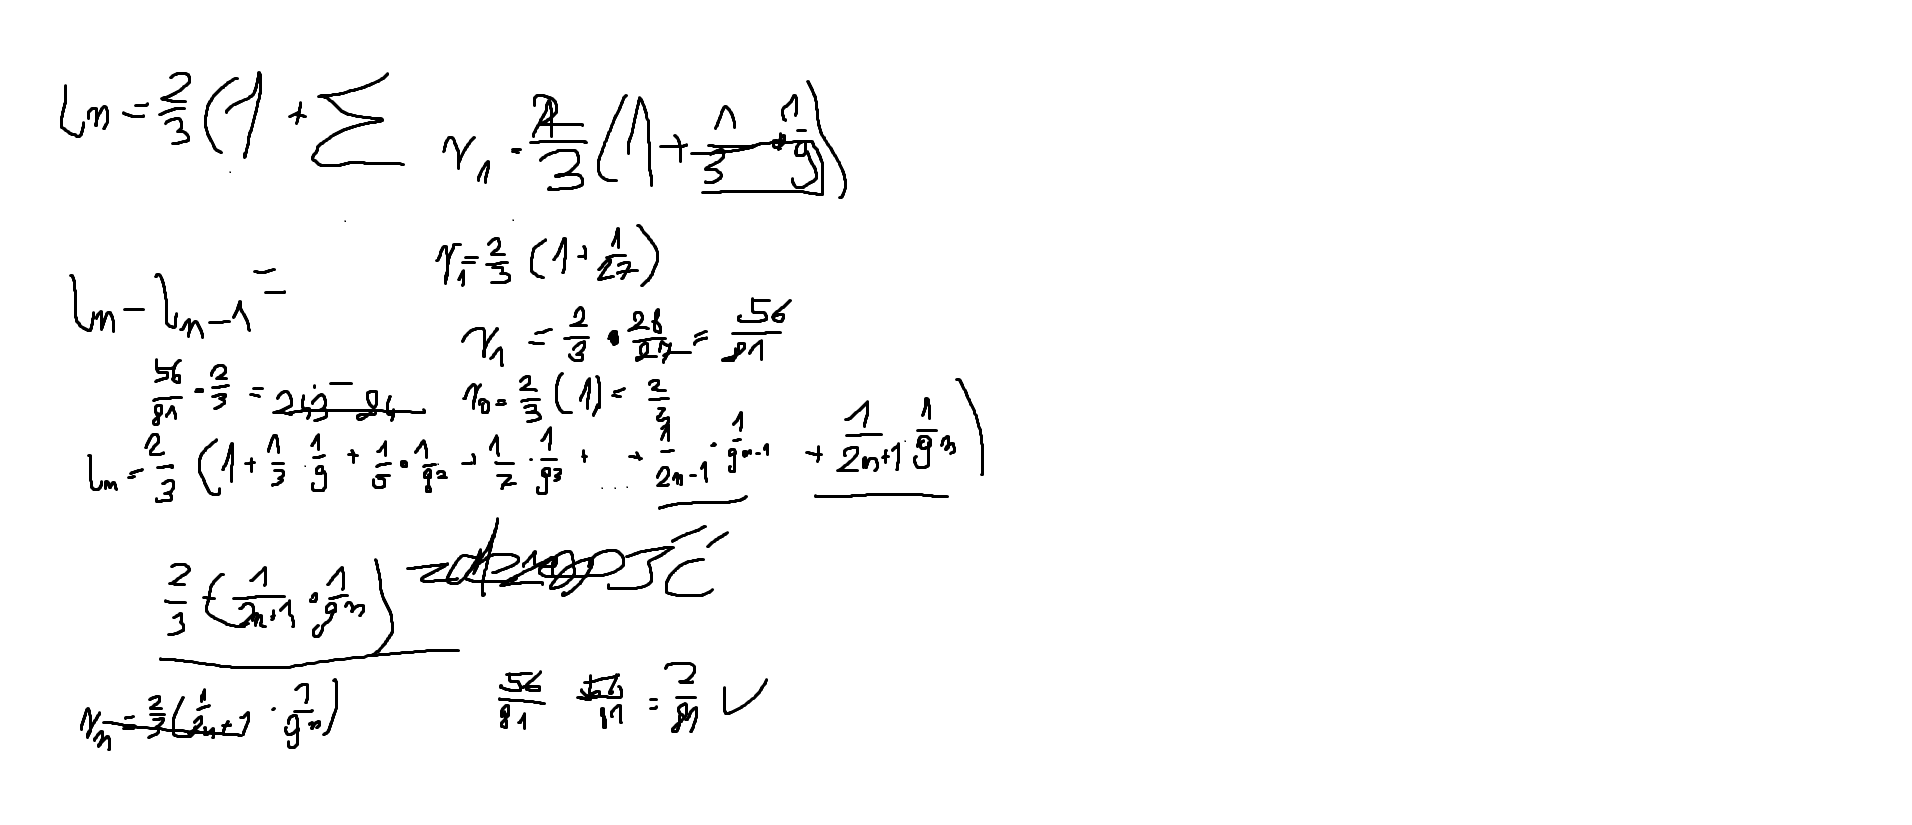 Ln = 2/3 (1 + ∑
r1 = 2/3 (1 + 1/3 · 1/9)
r1 = 2/3 (1 + 1/27)
Ln - Ln-1 =
r1 = 2/3 · 28/27 = 56/81
56/81 - 2/3 =
r0 = 2/3 (1) = 2/3
Ln = 2/3 (1 + 1/3 · 1/9 + 1/5 · 1/9^2 + 1/7 · 1/9^3 + ... + 1/2n-1 · 1/9^n-1 + 1/2n+1 · 1/9^n)
2/3 (1/2n+1 · 1/9^n)
rn = 2/3 (1/2n+1 · 1/9^n)
56/81 = 2/81 ✓